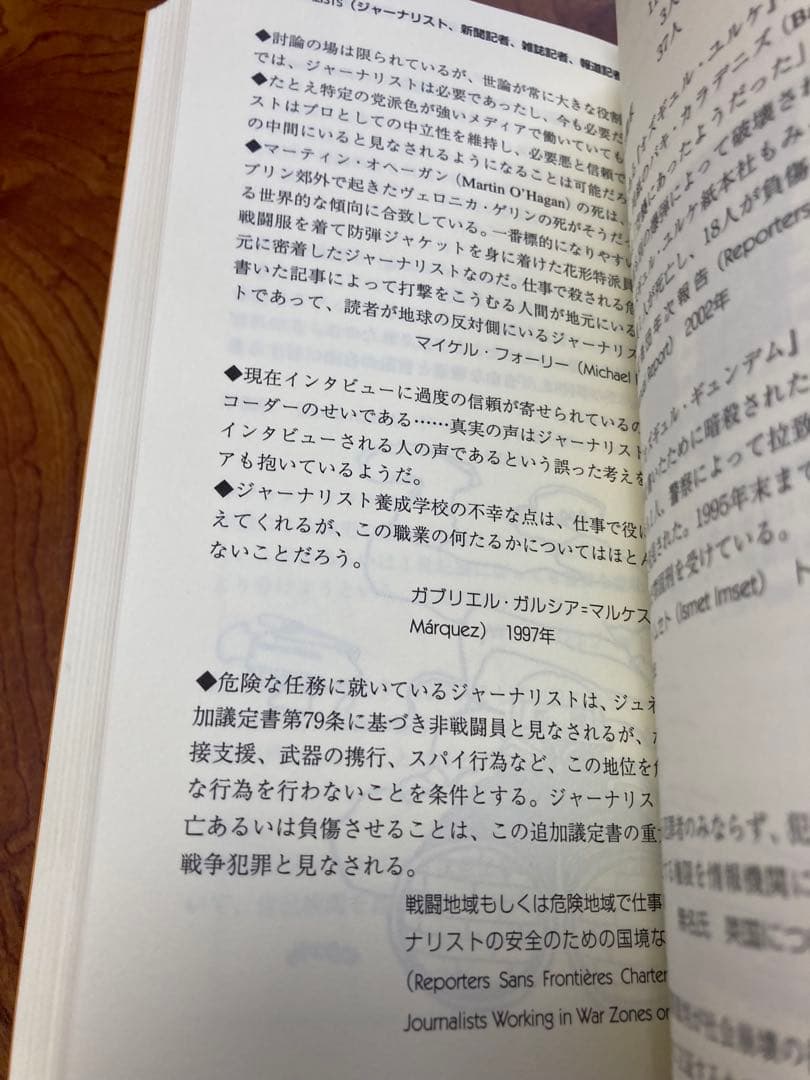 LISTS(ジャーナリスト、新聞記者、雑誌記者、報道記者
◆討論の場は限られているが、世論が常に大きな役割
では、ジャーナリストは必要であったし、今も必要だ
◆たとえ特定の党派色が強いメディアで働いていても
ストはプロとしての中立性を維持し、必要悪と信頼で
の中間にいると見なされるようになることは可能だろ
◆マーティン・オヘーガン(Martin O'Hagan)の死は、
ブリン郊外で起きたヴェロニカ・ゲリンの死がそうだっ
る世界的な傾向に合致している。一番標的になりやすい
戦闘服を着て防弾ジャケットを身に着けた花形特派員
元に密着したジャーナリストなのだ。仕事で殺される危
書いた記事によって打撃をこうむる人間が地元にいる
トであって、読者が地球の反対側にいるジャーナリス
マイケル・フォーリー(Michael
◆現在インタビューに過度の信頼が寄せられているの
コーダーのせいである……真実の声はジャーナリスト
インタビューされる人の声であるという誤った考えを
アも抱いているようだ。
◆ジャーナリスト養成学校の不幸な点は、仕事で役に
えてくれるが、この職業の何たるかについてはほとん
ないことだろう。
ガブリエル・ガルシア=マルケス
Márquez) 1997年
◆危険な任務に就いているジャーナリストは、ジュネ
加議定書第79条に基づき非戦闘員と見なされるが、
接支援、武器の携行、スパイ行為など、この地位を
な行為を行わないことを条件とする。ジャーナリス
亡あるいは負傷させることは、この追加議定書の重
戦争犯罪と見なされる。
戦闘地域もしくは危険地域で仕事
ナリストの安全のための国境な
(Reporters Sans Frontières Charter
Journalists Working in War Zones or
3人
37人
オズギュル・ユルケ』
紙のバキ・カラデニズ(Ba
にあったようだった」
爆弾によって破壊され
ギュル・ユルケ紙本社もみ
人が死亡し、18人が負傷
年次報告(Reporters
Report) 2002年
ズギュル・ギュンデム』
いたために暗殺された
人、警察によって拉致
された。1995年末まで
刑を受けている。
セト(Ismet Imset) ト
者のみならず、犯
る権限を情報機関に
匿名氏 英国につ
が社会崩壊の